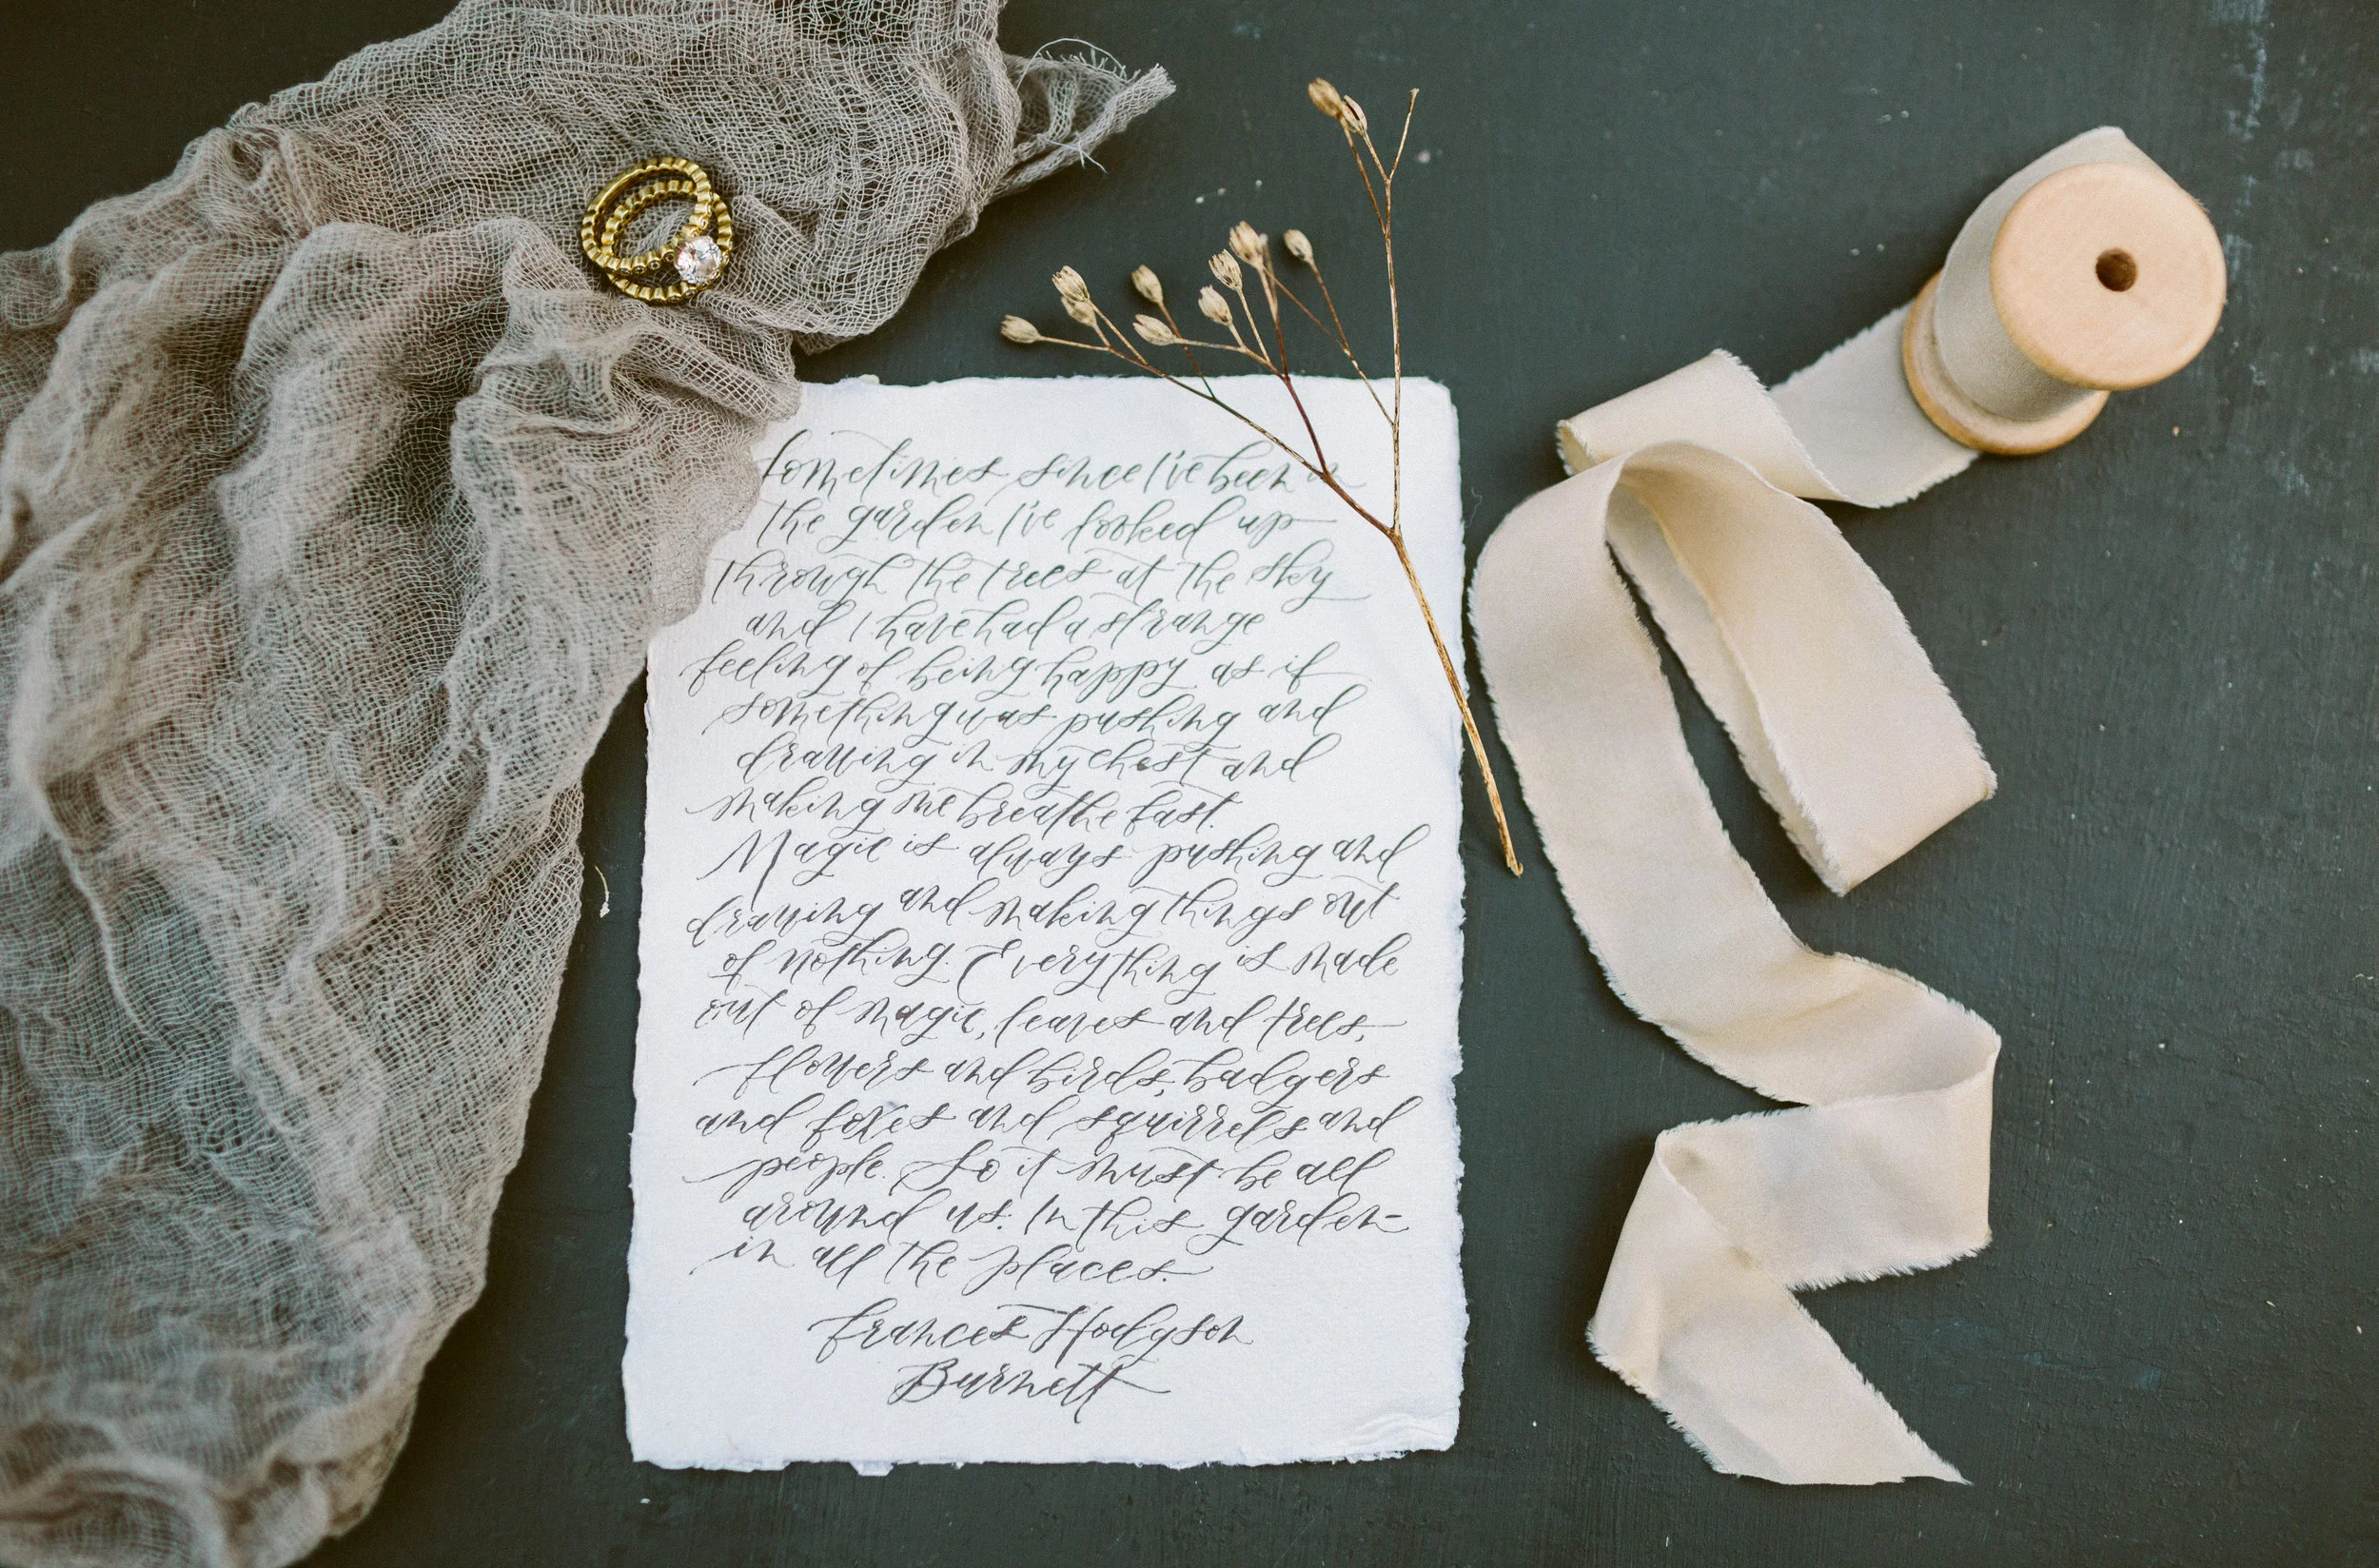 Sometimes since I've been in
the garden I've looked up
through the trees at the sky
and I have had a strange
feeling of being happy as if
something was pushing and
drawing in my chest and
making me breathe fast.
Magic is always pushing and
drawing and making things out
of nothing. Everything is made
out of magic, leaves and trees,
flowers and birds, badgers
and foxes and squirrels and
people. So it must be all
around us. In this garden-
in all the places.
Frances Hodgson
Burnett